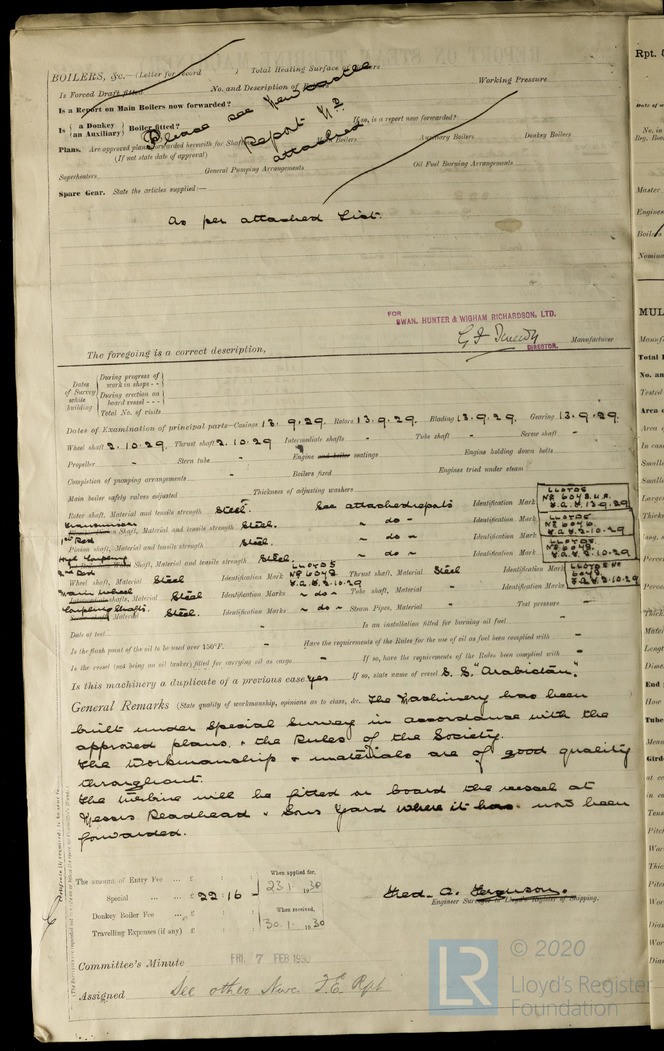 BOILERS, &c.—(Letter for record ) Total Heating Surface of Boilers
Is Forced Draft fitted No. and Description of Working Pressure
Is a Report on Main Boilers now forwarded?
Is { a Donkey / an Auxiliary } Boiler fitted? If so, is a report now forwarded?
Please see Newcastle
Report No
attached
Plans. Are approved plans forwarded herewith for Shafting Main Boilers Auxiliary Boilers Donkey Boilers
(If not state date of approval)
Superheaters General Pumping Arrangements Oil Fuel Burning Arrangements
Spare Gear. State the articles supplied:—
As per attached List.
FOR
SWAN, HUNTER & WIGHAM RICHARDSON, LTD.
DIRECTOR.
The foregoing is a correct description, Manufacturer
Dates of Survey while building
During progress of work in shops - -
During erection on board vessel - - -
Total No. of visits
Dates of Examination of principal parts—Casings 13.9.29. Rotors 13.9.29. Blading 13.9.29. Gearing 13.9.29.
Wheel shaft 2.10.29. Thrust shaft 2.10.29 Intermediate shafts - Tube shaft - Screw shaft -
Propeller - Stern tube - Engine and boiler seatings - Engine holding down bolts -
Completion of pumping arrangements - Boilers fixed - Engines tried under steam -
Main boiler safety valves adjusted Thickness of adjusting washers
Rotor shaft, Material and tensile strength Steel. See attached reports Identification Mark LLOYDS No 6048.
13.9.29
Shaft, Material and tensile strength Steel. " do " Identification Mark LLOYDS No 6046. 2.10.29
1st Red
Pinion shaft, Material and tensile strength Steel. " do " Identification Mark LLOYDS No 6048. 2.10.29
Coupling Shaft, Material and tensile strength Steel " do " Identification Mark LLOYDS No 6048. 2.10.29
2nd Red
Wheel shaft, Material Steel Identification Mark LLOYDS No 6048 2.10.29 Thrust shaft, Material Steel Identification Mark
Main Wheel
shafts, Material Steel Identification Marks " do " Tube shaft, Material - Identification Marks -
Coupling Shafts.
Material Steel. Identification Marks " do " Steam Pipes, Material - Test pressure -
Date of test - Is an installation fitted for burning oil fuel -
Is the flash point of the oil to be used over 150°F. - Have the requirements of the Rules for the use of oil as fuel been complied with -
Is the vessel (not being an oil tanker) fitted for carrying oil as cargo - If so, have the requirements of the Rules been complied with -
Is this machinery a duplicate of a previous case Yes If so, state name of vessel S.S. "Arabistan."
General Remarks (State quality of workmanship, opinions as to class, &c. The Machinery has been
built under Special Survey in accordance with the
approved plans, & the Rules of the Society.
The Workmanship & materials are of good quality
throughout.
The turbine will be fitted on board the vessel at
Messrs Readhead & Sons Yard where it has now been
forwarded.
The amount of Entry Fee ... £ : When applied for,
Special ... ... £ 22:16 - 23.1.1930
Donkey Boiler Fee ... £ : When received,
Travelling Expenses (if any) £ : 30.1.1930
Fred. A. Ferguson.
Engineer Surveyor to Lloyd's Register of Shipping.
Committee's Minute FRI. 7 FEB 1930
Assigned See other Nwc F.E. Rpt
LR © 2020
Lloyd's Register
Foundation
Rpt.